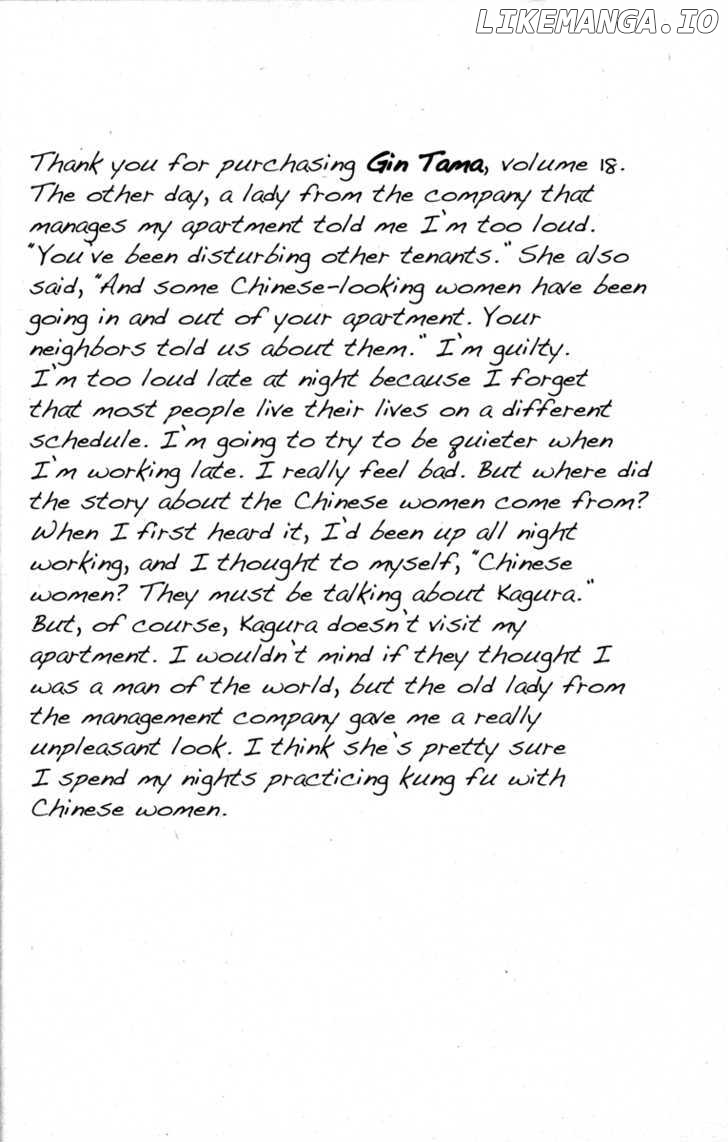 LIKEMANGA.IO
Thank you for purchasing Gin Tama, volume 18.
The other day, a lady from the company that
manages my apartment told me I'm too loud.
"You've been disturbing other tenants." She also
said, "And some Chinese-looking women have been
going in and out of your apartment. Your
neighbors told us about them." I'm guilty.
I'm too loud late at night because I forget
that most people live their lives on a different
schedule. I'm going to try to be quieter when
I'm working late. I really feel bad. But where did
the story about the Chinese women come from?
When I first heard it, I'd been up all night
working, and I thought to myself, "Chinese
women? They must be talking about Kagura."
But, of course, Kagura doesn't visit my
apartment. I wouldn't mind if they thought I
was a man of the world, but the old lady from
the management company gave me a really
unpleasant look. I think she's pretty sure
I spend my nights practicing kung fu with
Chinese women.